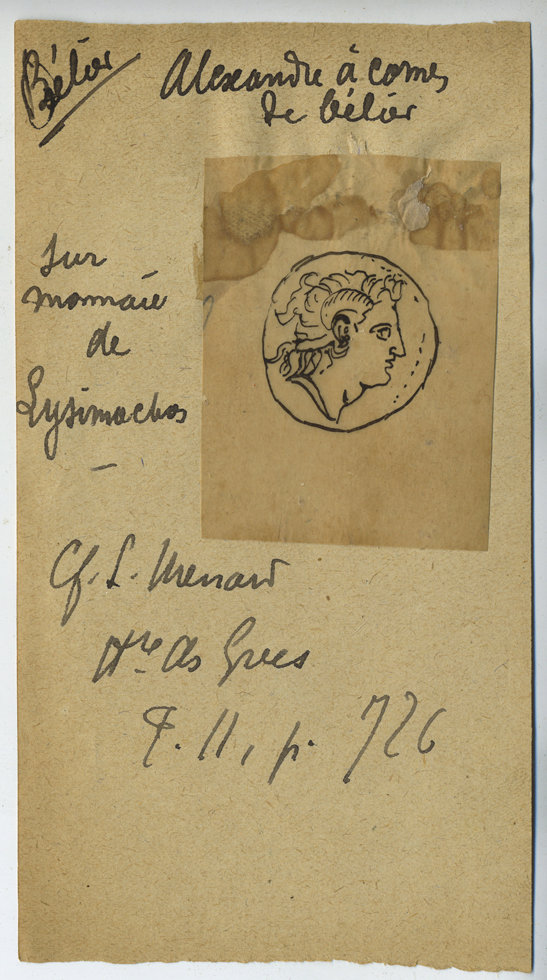 Bélier
Alexandre à cornes
de bélier
sur
monnaie
de
Lysimachos
Cf. L. Menard
Hre des Grecs
T. II, p. 726